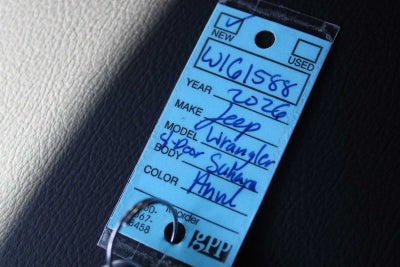 NEW USED
W161588
YEAR 2026
MAKE Jeep
MODEL Wrangler
BODY 4 Door Sahara
COLOR Anvl
gpp